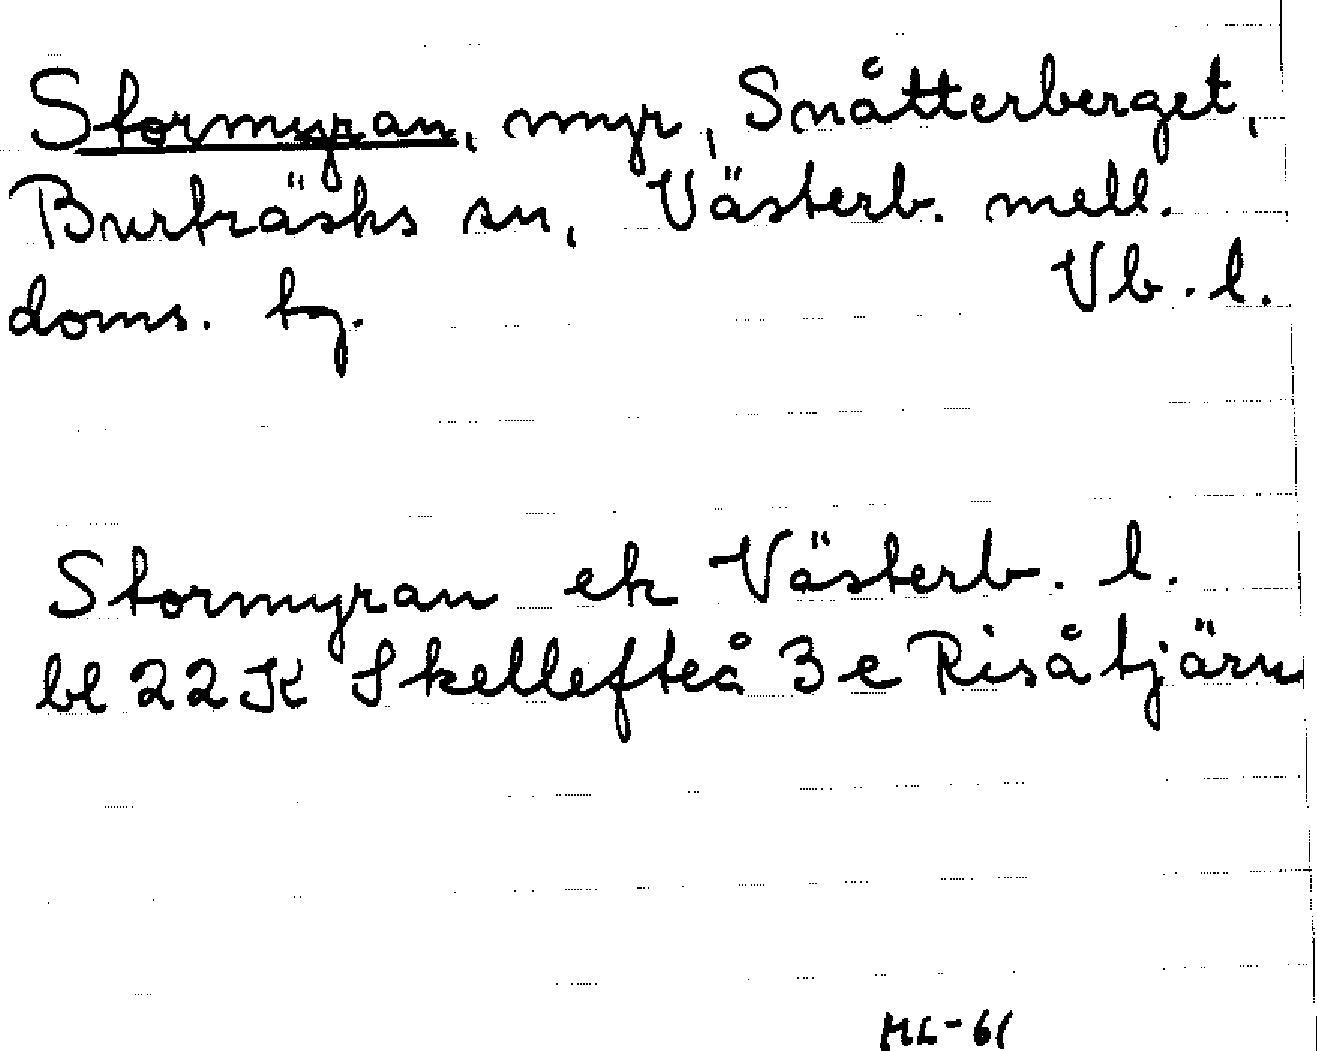 Stormyran, myr, Snåtterberget,
Burträsks sn, Västerb. mell.
doms. tg. Vb. l.
Stormyran ek Västerb. l.
bl 22 K Skellefteå 3 e Risåtjärn
ML-61